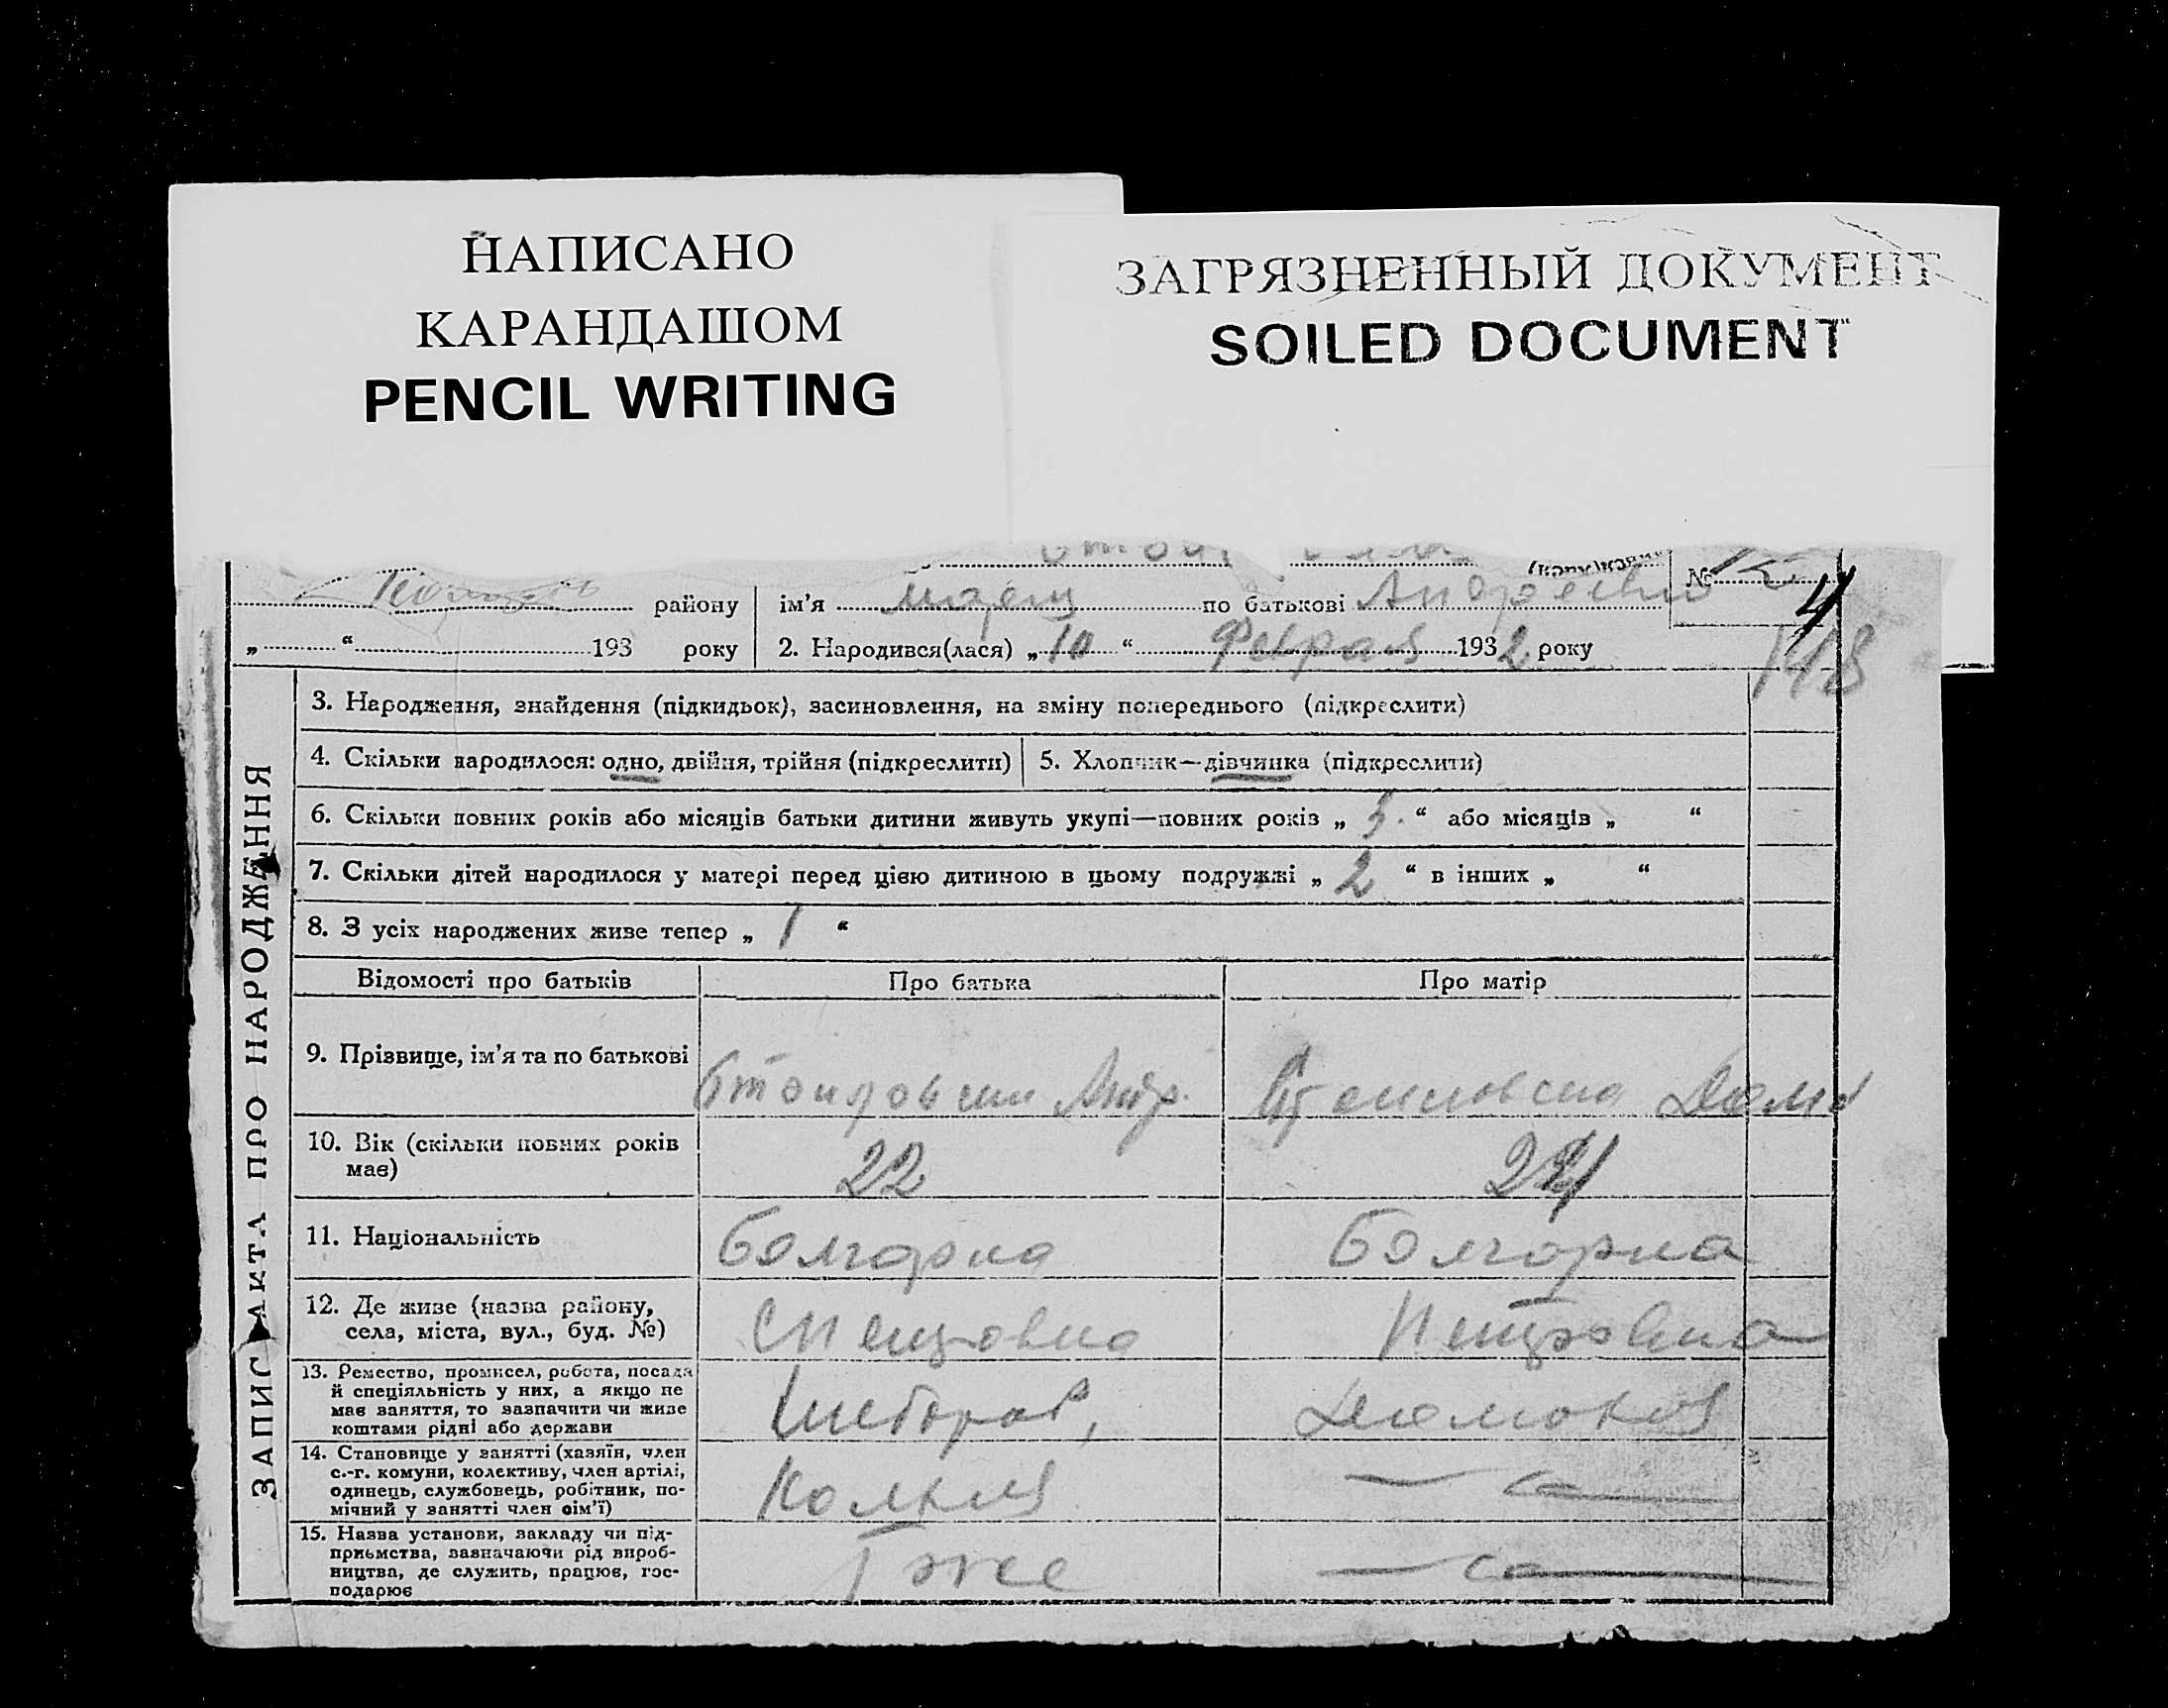 НАПИСАНО
КАРАНДАШОМ
PENCIL WRITING
ЗАГРЯЗНЕННЫЙ ДОКУМЕНТ
SOILED DOCUMENT
№
району
ім’я
по батькові
„ “ 193 року
2. Народився(лася) „ 10 “ Февраля 1932 року
148
ЗАПИС АКТА ПРО НАРОДЖЕННЯ
3. Народження, знайдення (підкидьок), засиновлення, на зміну попереднього (підкреслити)
4. Скільки народилося: одно, двійня, трійня (підкреслити)
5. Хлопчик—дівчинка (підкреслити)
6. Скільки повних років або місяців батьки дитини живуть укупі—повних років „ “ або місяців „ “
7. Скільки дітей народилося у матері перед цією дитиною в цьому подружжі „ 2 “ в інших „ “
8. З усіх народжених живе тепер „ 1 “
Відомості про батьків
Про батька
Про матір
9. Прізвище, ім’я та по батькові
10. Вік (скільки повних років
має)
22
11. Національність
Болгарка
Болгарка
12. Де живе (назва району,
села, міста, вул., буд. №)
Петровка
13. Ремество, промисел, робота, посада
й спеціяльність у них, а якщо не
має заняття, то зазначити чи живе
коштами рідні або держави
14. Становище у занятті (хазяїн, член
с.-г. комуни, колективу, член артілі,
одинець, службовець, робітник, по-
мічний у занятті член сім’ї)
15. Назва установи, закладу чи під-
приємства, зазначаючи рід вироб-
ництва, де служить, працює, гос-
подарює